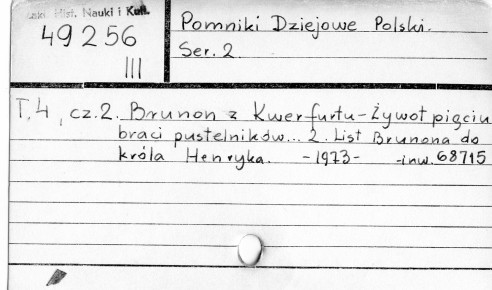 Hist. Nauki i Kult.
49256
III
Pomniki Dziejowe Polski.
Ser. 2
T. 4, cz. 2. Brunon z Kwerfurtu - Żywot pięciu
braci pustelników... 2. List Brunona do
króla Henryka. - 1973 - - inw. 68715